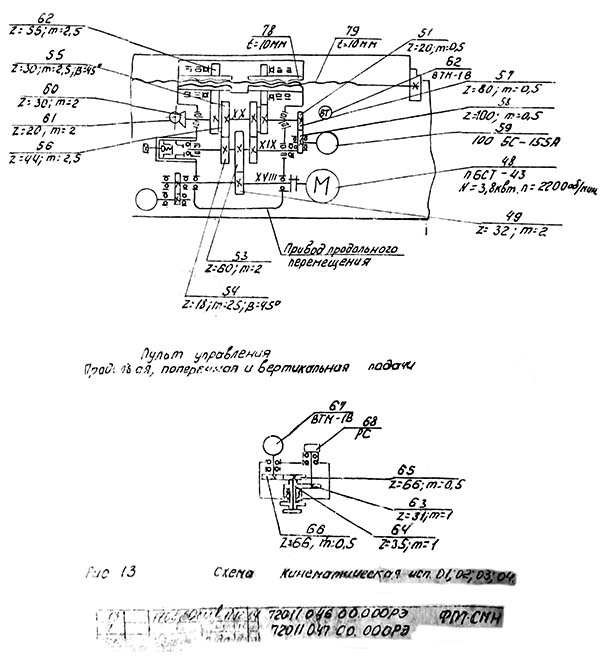 62
Z=55; m=2,5
55
Z=30; m=2,5; β=45°
60
Z=30; m=2
61
Z=20; m=2
56
Z=44; m=2,5
78
t=10мм
79
t=10мм
51
Z=20; m=0,5
62
ВТМ-1В
57
Z=80; m=0,5
58
Z=100; m=0,5
59
100 БС-1SSA
48
ПБСТ-43
N=3,8квт. n=2200об/мин
49
Z=32; m=2
ВТ
XX
XIX
XVIII
М
Привод продольного
перемещения
53
Z=60; m=2
54
Z=18; m=25; β=45°
Пульт управления
поперечная и вертикальная подачи
67
ВТМ-1В
68
РС
65
Z=66; m=0,5
63
Z=31; m=1
64
Z=35; m=1
66
Z=66, m=0,5
Рис 13 Схема Кинематическая исп. 01; 02; 03; 04.
13 72011 046 00.000РЭ ФП-СМН
72011 047 00.000РЭ